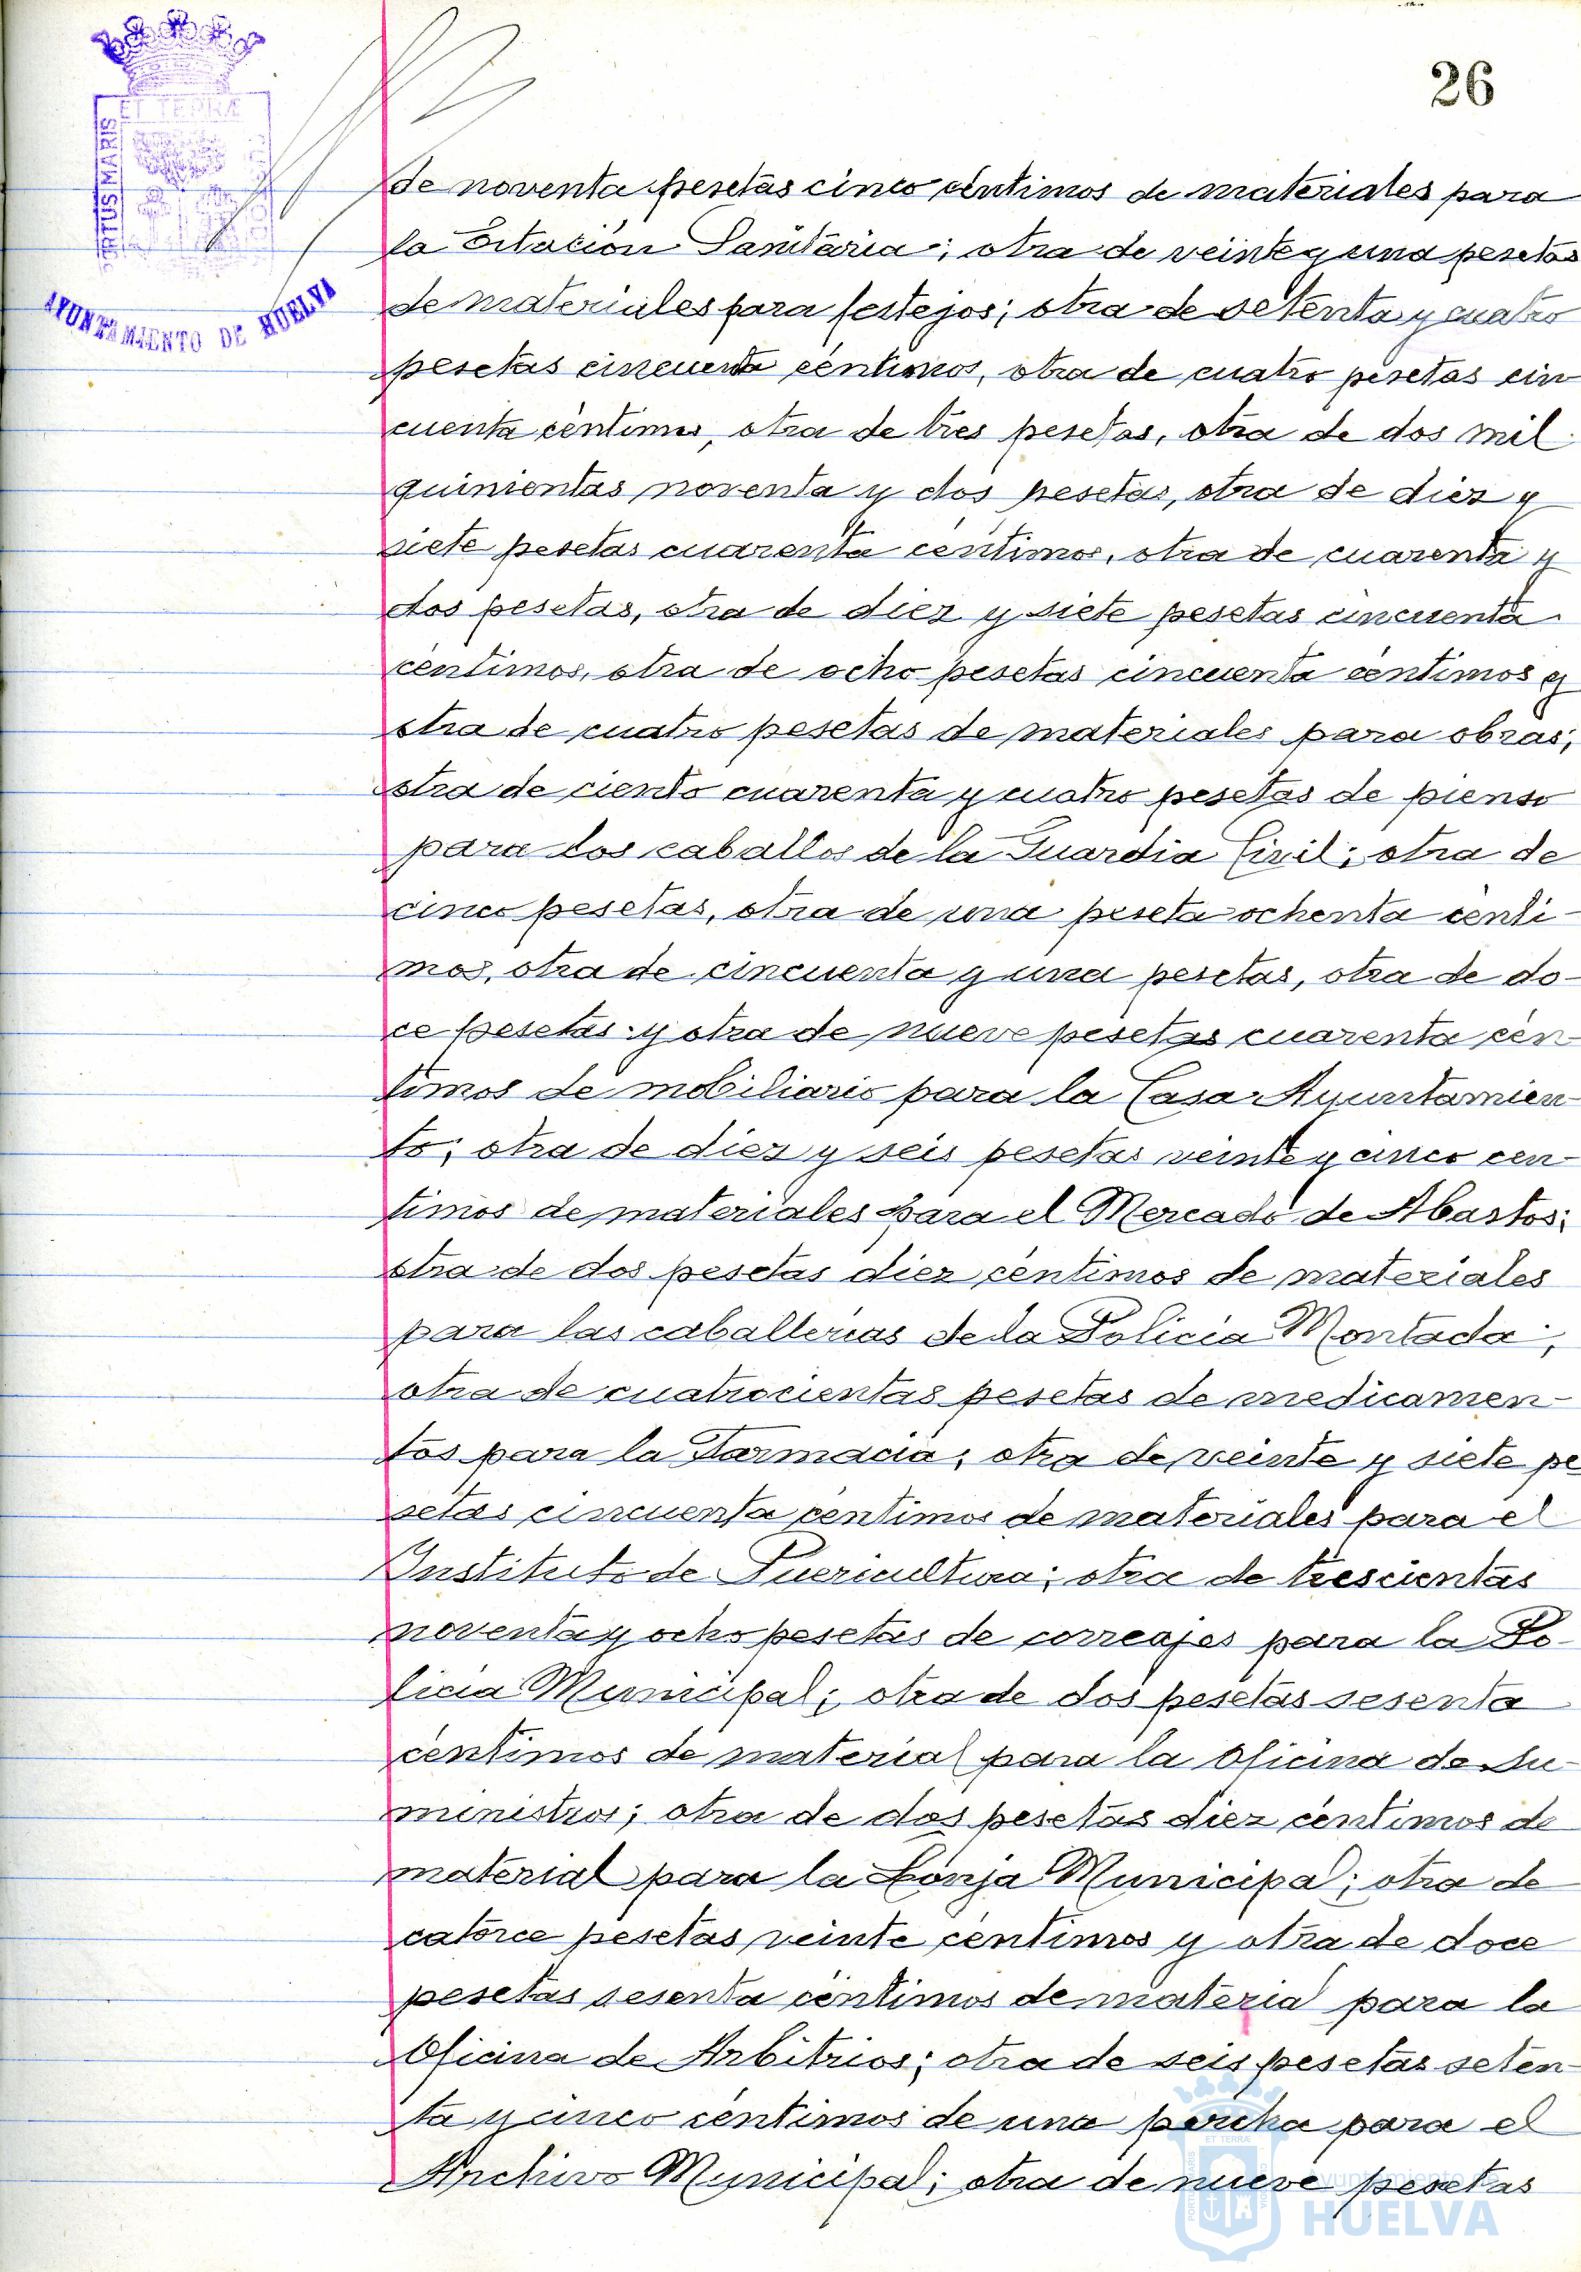 26
ET TERRÆ
PORTUS MARIS
AYUNTAMIENTO DE HUELVA
de noventa pesetas cinco céntimos de materiales para
la Estación Sanitaria; otra de veinte y una pesetas
de materiales para festejos; otra de setenta y cuatro
pesetas cincuenta céntimos, otra de cuatro pesetas cin
cuenta céntimos, otra de tres pesetas, otra de dos mil
quinientas noventa y dos pesetas, otra de diez y
siete pesetas cuarenta céntimos, otra de cuarenta y
dos pesetas, otra de diez y siete pesetas cincuenta
céntimos, otra de ocho pesetas cincuenta céntimos y
otra de cuatro pesetas de materiales para obras;
otra de ciento cuarenta y cuatro pesetas de pienso
para los caballos de la Guardia Civil; otra de
cinco pesetas, otra de una peseta ochenta cénti-
mos, otra de cincuenta y una pesetas, otra de do-
ce pesetas y otra de nueve pesetas cuarenta cén-
timos de mobiliario para la Casa Ayuntamien-
to; otra de diez y seis pesetas veinte y cinco cen-
timos de materiales para el Mercado de Abastos;
otra de dos pesetas diez céntimos de materiales
para las caballerías de la Policía Montada;
otra de cuatrocientas pesetas de medicamen-
tos para la Farmacia; otra de veinte y siete pe
setas cincuenta centimos de materiales para el
Instituto de Puericultura; otra de trescientas
noventa y ocho pesetas de correajes para la Po-
licía Municipal; otra de dos pesetas sesenta
céntimos de material para la Oficina de Su-
ministros; otra de dos pesetas diez céntimos de
material para la Lonja Municipal; otra de
catorce pesetas veinte céntimos y otra de doce
pesetas sesenta céntimos de material para la
Oficina de Arbitrios; otra de seis pesetas seten-
ta y cinco céntimos de una percha para el
Archivo Municipal; otra de nueve pesetas
Ayuntamiento de
HUELVA